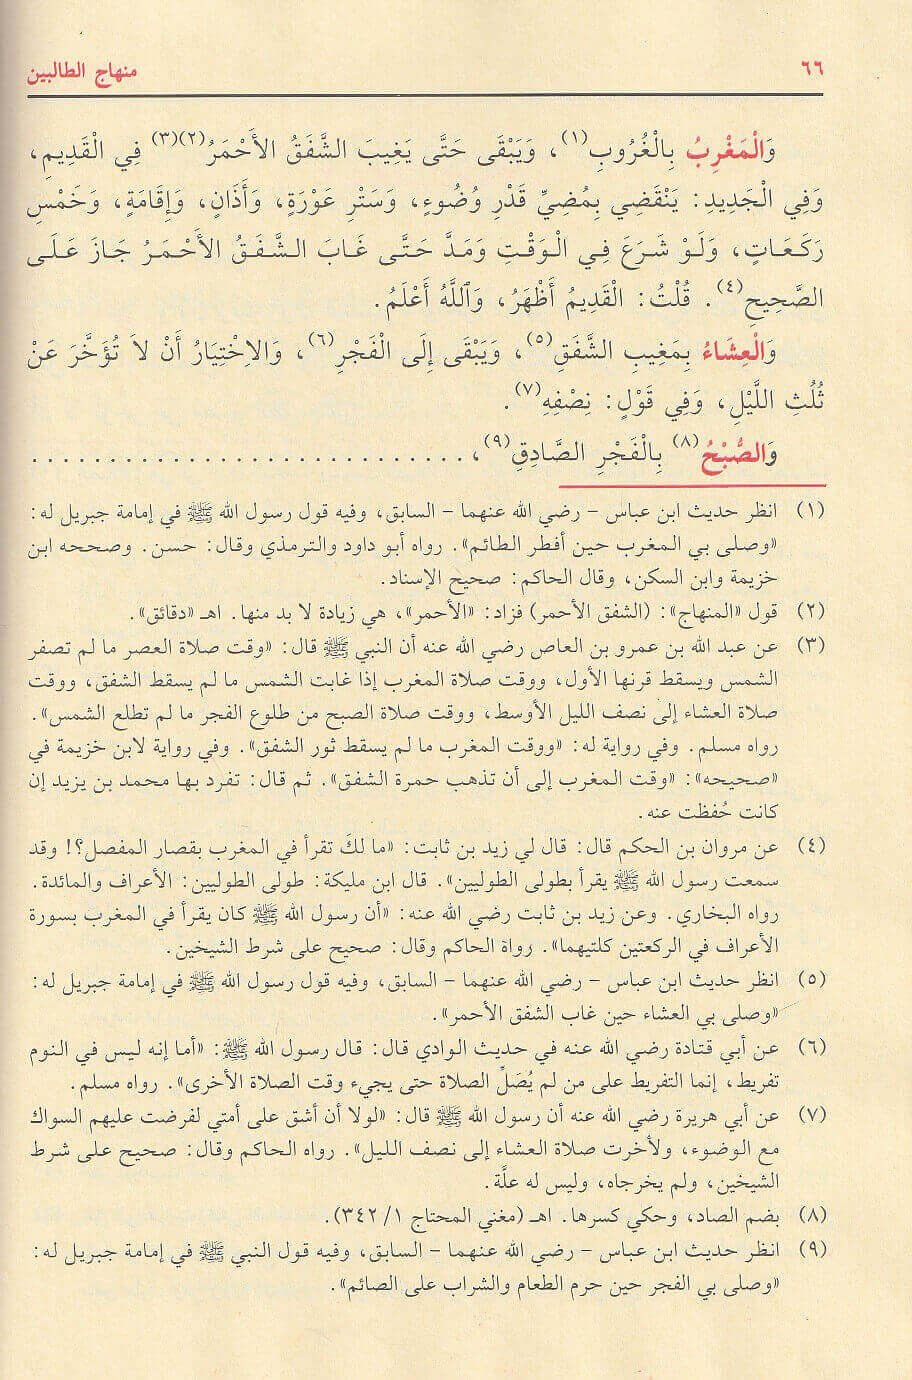 ٦٦ منهاج الطالبين
وَالْمَغْرِبُ بِالْغُرُوبِ(١)، وَيَبْقَى حَتَّى يَغِيبَ الشَّفَقُ الأَحْمَرُ(٢)(٣) فِي الْقَدِيمِ،
وَفِي الْجَدِيدِ: يَنْقَضِي بِمُضِيِّ قَدْرِ وُضُوءٍ، وَسَتْرِ عَوْرَةٍ، وَأَذَانٍ، وَإِقَامَةٍ، وَخَمْسِ
رَكَعَاتٍ، وَلَوْ شَرَعَ فِي الْوَقْتِ وَمَدَّ حَتَّى غَابَ الشَّفَقُ الأَحْمَرُ جَازَ عَلَى
الصَّحِيحِ(٤). قُلْتُ: الْقَدِيمُ أَظْهَرُ، وَاللَّهُ أَعْلَمُ.
وَالْعِشَاءُ بِمَغِيبِ الشَّفَقِ(٥)، وَيَبْقَى إِلَى الْفَجْرِ(٦)، وَالاِخْتِيَارُ أَنْ لاَ تُؤَخَّرَ عَنْ
ثُلُثِ اللَّيْلِ، وَفِي قَوْلٍ: نِصْفِهِ(٧).
وَالصُّبْحُ(٨) بِالْفَجْرِ الصَّادِقِ(٩)، . . . . . . . . . . . . . . . . . . . . . . . . . . . .
(١) انظر حديث ابن عباس - رضي الله عنهما - السابق، وفيه قول رسول الله ﷺ في إمامة جبريل له:
«وصلى بي المغرب حين أفطر الطائم». رواه أبو داود والترمذي وقال: حسن. وصححه ابن
خزيمة وابن السكن، وقال الحاكم: صحيح الإسناد.
(٢) قول «المنهاج»: (الشفق الأحمر) فزاد: «الأحمر»، هي زيادة لا بد منها. اهـ «دقائق».
(٣) عن عبد الله بن عمرو بن العاص رضي الله عنه أن النبي ﷺ قال: «وقت صلاة العصر ما لم تصفر
الشمس ويسقط قرنها الأول، ووقت صلاة المغرب إذا غابت الشمس ما لم يسقط الشفق، ووقت
صلاة العشاء إلى نصف الليل الأوسط، ووقت صلاة الصبح من طلوع الفجر ما لم تطلع الشمس».
رواه مسلم. وفي رواية له: «ووقت المغرب ما لم يسقط ثور الشفق». وفي رواية لابن خزيمة في
«صحيحه»: «وقت المغرب إلى أن تذهب حمرة الشفق». ثم قال: تفرد بها محمد بن يزيد إن
كانت حُفظت عنه.
(٤) عن مروان بن الحكم قال: قال لي زيد بن ثابت: «ما لكَ تقرأ في المغرب بقصار المفصل؟! وقد
سمعت رسول الله ﷺ يقرأ بطولى الطوليين». قال ابن مليكة: طولى الطوليين: الأعراف والمائدة.
رواه البخاري. وعن زيد بن ثابت رضي الله عنه: «أن رسول الله ﷺ كان يقرأ في المغرب بسورة
الأعراف في الركعتين كلتيهما». رواة الحاكم وقال: صحيح على شرط الشيخين.
(٥) انظر حديث ابن عباس - رضي الله عنهما - السابق، وفيه قول رسول الله ﷺ في إمامة جبريل له:
«وصلى بي العشاء حين غاب الشفق الأحمر».
(٦) عن أبي قتادة رضي الله عنه في حديث الوادي قال: قال رسول الله ﷺ: «أما إنه ليس في النوم
تفريط، إنما التفريط على من لم يُصَلِّ الصلاة حتى يجيء وقت الصلاة الأخرى». رواه مسلم.
(٧) عن أبي هريرة رضي الله عنه أن رسول الله ﷺ قال: «لولا أن أشق على أمتي لفرضت عليهم السواك
مع الوضوء، ولأخرت صلاة العشاء إلى نصف الليل». رواه الحاكم وقال: صحيح على شرط
الشيخين، ولم يخرجاه، وليس له علَّة.
(٨) بضم الصاد، وحكي كسرها. اهـ (مغني المحتاج ١/ ٣٤٢).
(٩) انظر حديث ابن عباس - رضي الله عنهما - السابق، وفيه قول النبي ﷺ في إمامة جبريل له:
«وصلى بي الفجر حين حرم الطعام والشراب على الصائم».